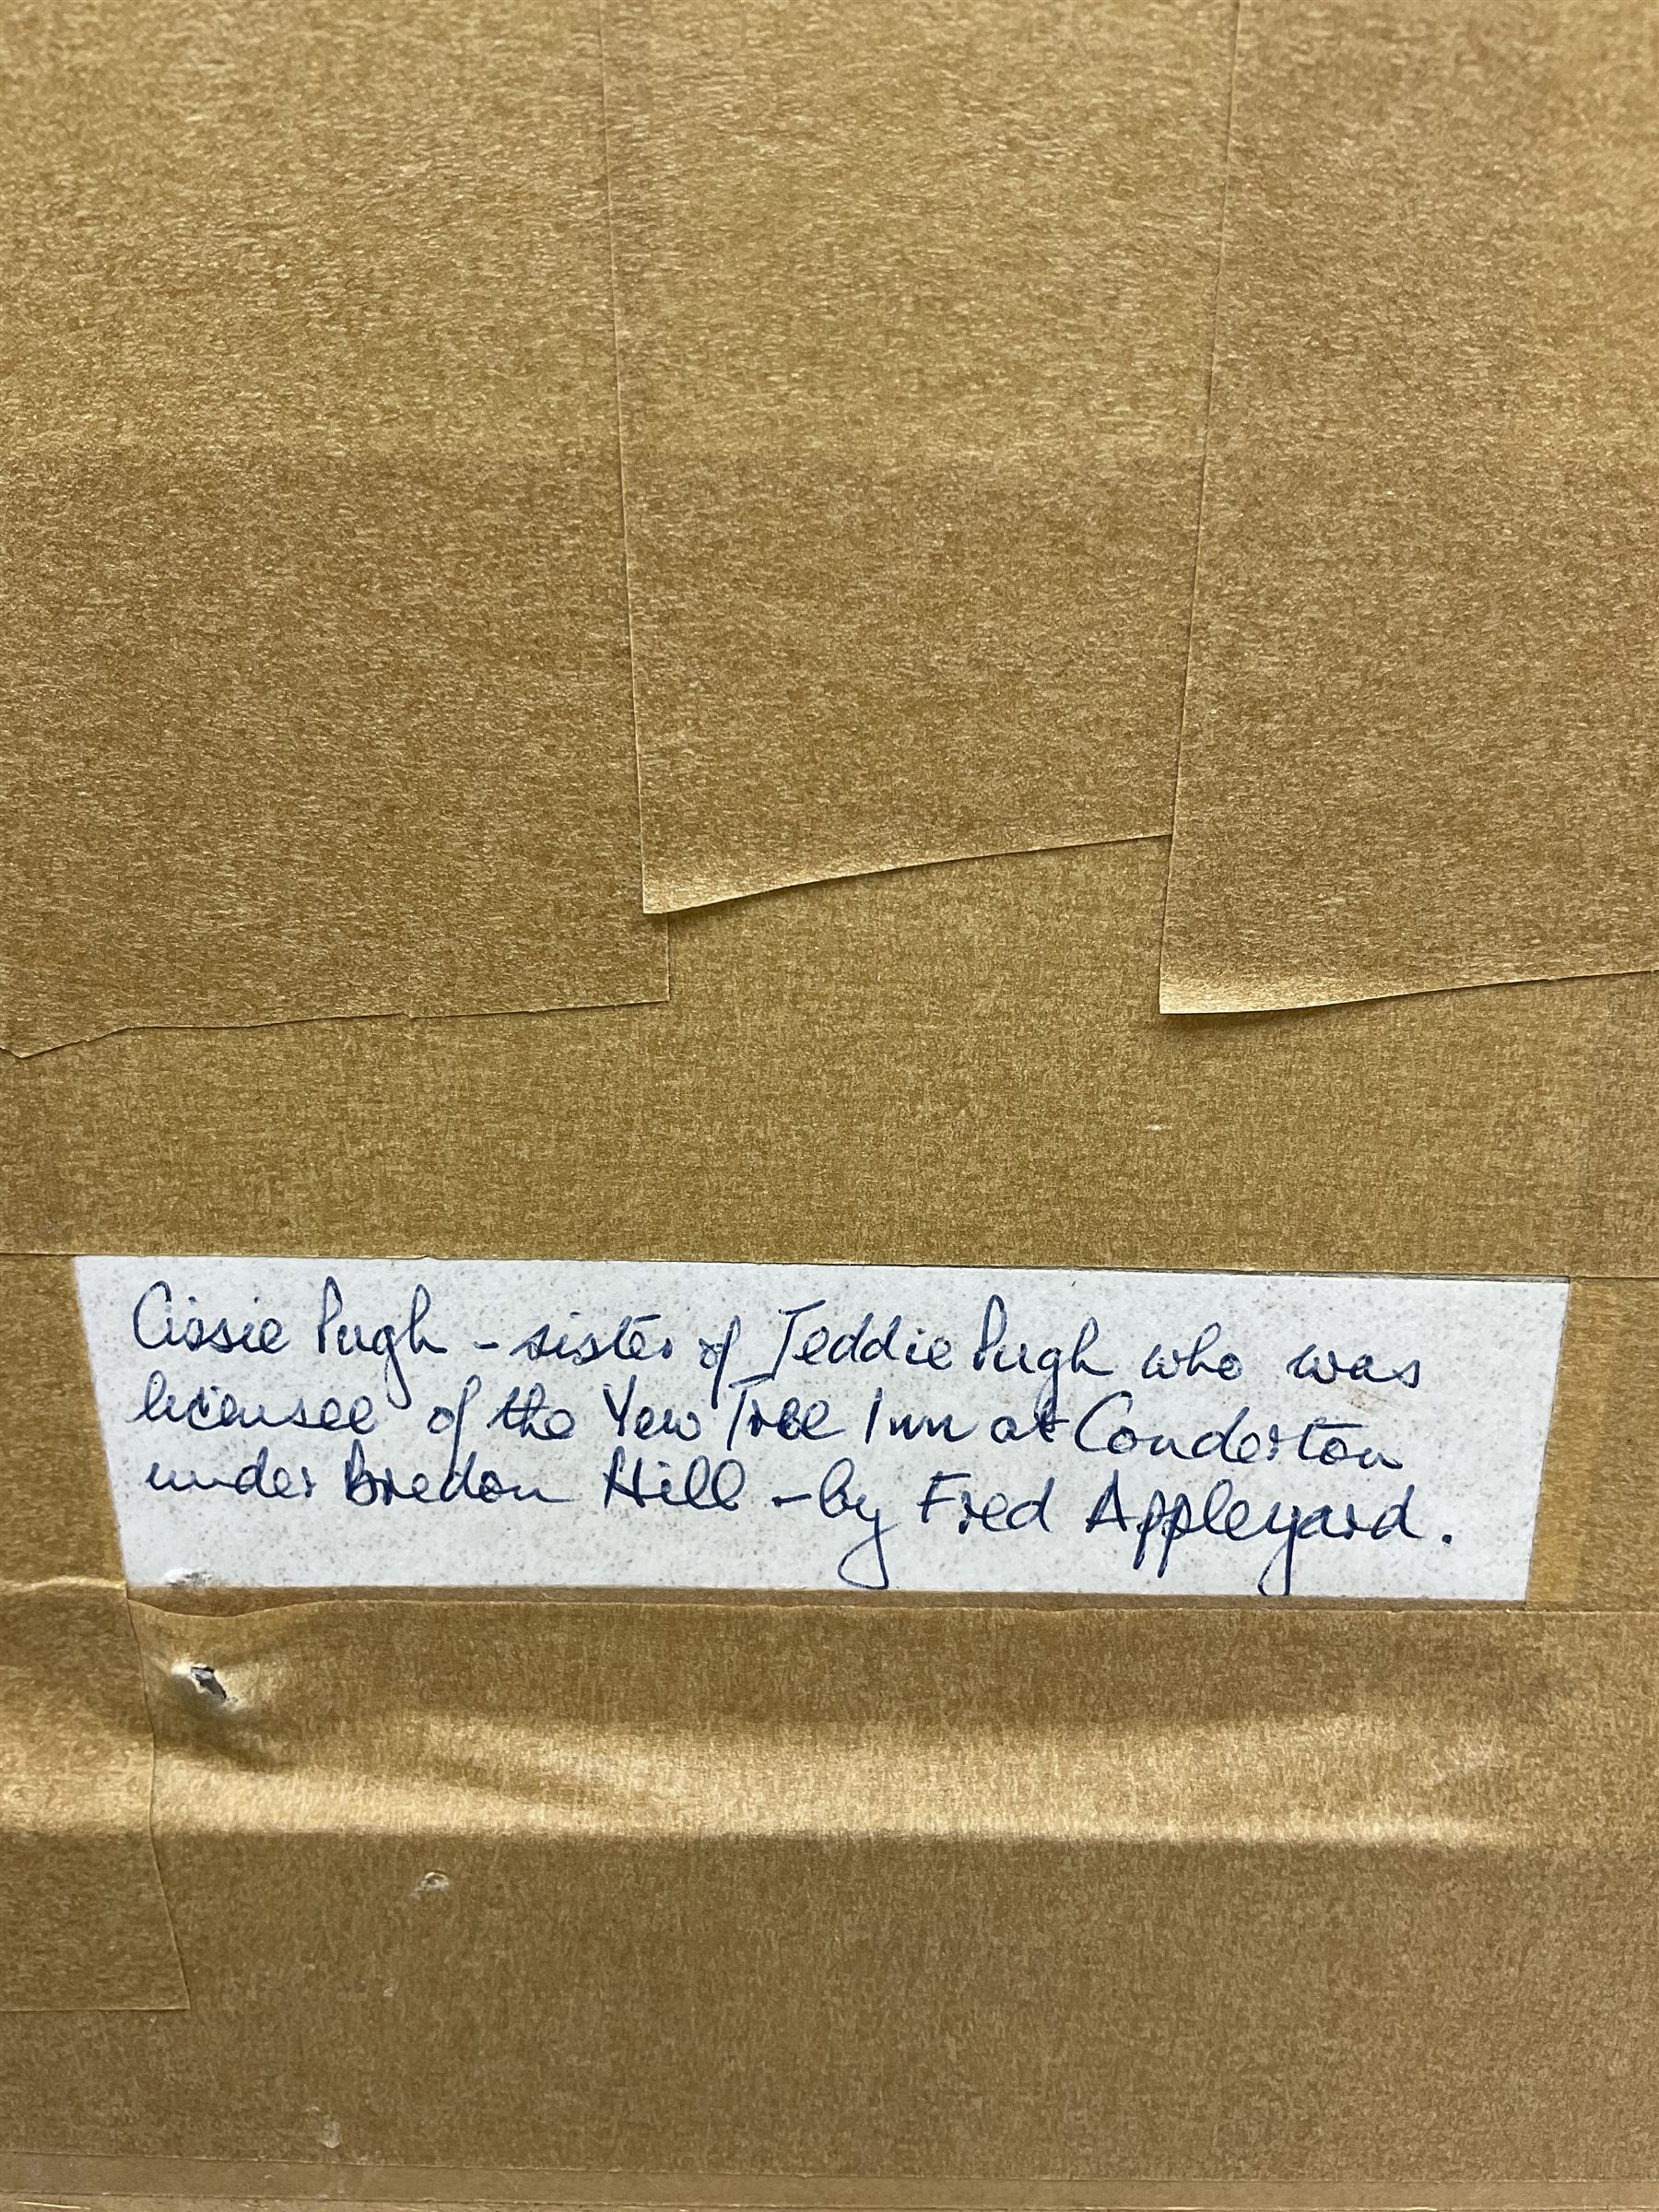 Cissie Pugh - sister of Teddie Pugh who was
licensee of the Yew Tree Inn at Conderton
under Bredon Hill - by Fred Appleyard.